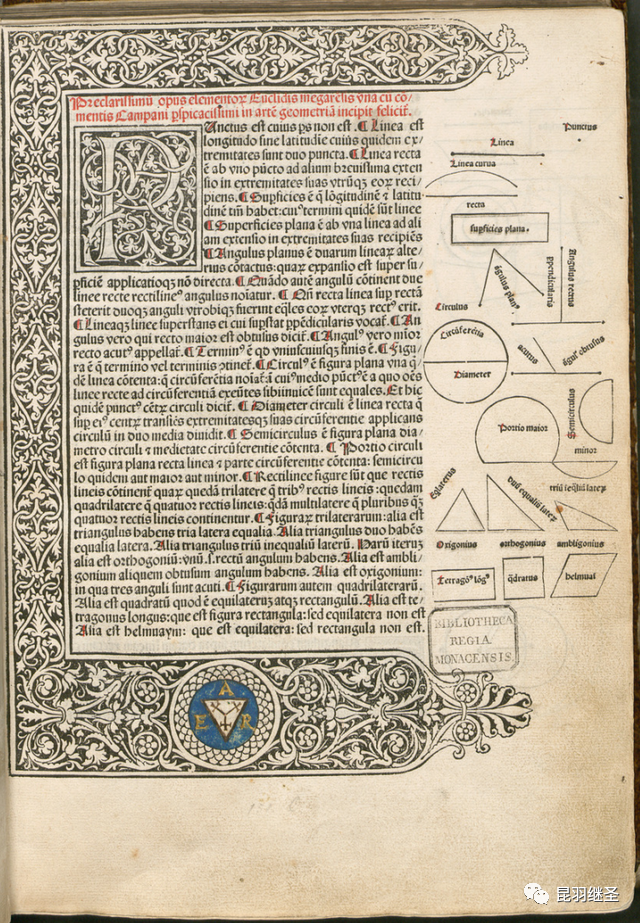 Preclarissimū opus elementoꝝ Euclidis megarēsis vna cū cō/
mentis Campani ꝑspicacissimi in artē geometriā incipit felicit̃.
P
Vnctus est cuius ps̄ non est. ¶ Linea est
longitudo sine latitudīe cuius quidem ex/
tremitates sunt duo puncta. ¶ Linea recta
ē ab vno pūcto ad alium breuissima exten
sio in extremitates suas vtrūqꝫ eoꝝ reci
piens. ¶ Supficies ē q̄ lōgitudinē ⁊ latitu
dinē tm̄ habet: cuiꝰ termini quidē sūt linee
¶ Superficies plana ē ab vna linea ad ali
am extensio in extremitates suas recipiēs
¶ Angulus planus ē duarum lineaꝝ alte/
rius cōtactus: quaꝝ expansio est super su/
ꝑficiē applicatioqꝫ nō directa. ¶ Quādo autē angulū cōtinent due
linee recte rectilineꝰ angulus noīatur. ¶ Qñ recta linea sup rectā
steterit duoqꝫ anguli vtrobiqꝫ fuerint eq̄les eoꝝ vterqꝫ rectꝰ erit.
¶ Lineaqꝫ linee superstans ei cui supstat ppēdicularis vocat̃. ¶ An
gulus vero qui recto maior est obtusus dicit̃. ¶ Angulꝰ vero minor
recto acutꝰ appellat̃. ¶ Terminꝰ ē qd̄ vniuscuiusqꝫ finis ē. ¶ Figu/
ra ē q̄ termino vel terminis ꝯtinet̃. ¶ Circulꝰ ē figura plana vna q/
dē linea cōtenta: q̄ circūferētia noīat̃: in cuiꝰ medio pūctꝰ ē a quo oēs
linee recte ad circūferentiā exeūtes sibiinuicē sunt equales. Et hic
quidē punctꝰ cētꝝ circuli dicit̃. ¶ Diameter circuli ē linea recta q̄
sup eiꝰ centꝝ transiēs extremitatesqꝫ suas circūferentie applicans
circulū in duo media diuidit. ¶ Semicirculus ē figura plana dia/
metro circuli ⁊ medietate circūferentie cōtenta. ¶ Portio circuli
est figura plana recta linea ⁊ parte circūferentie cōtenta: semicircu
lo quidem aut maior aut minor. ¶ Rectilinee figure sūt que rectis
lineis cōtinent̃ quaꝝ quedā trilatere q̄ tribꝰ rectis lineis: quedam
quadrilatere q̄ quatuor rectis lineis: qdā multilatere q̄ pluribus qꝫ
quatuor rectis lineis continentur. ¶ Figuraꝝ trilateraꝝ: alia est
triangulus habens tria latera equalia. Alia triangulus duo habēs
equalia latera. Alia triangulus triū inequaliū laterū. Harū iteꝝ
alia est orthogoniū: vnū .s. rectū angulum habens. Alia est ambli/
gonium aliquem obtusum angulum habens. Alia est oxigonium:
in qua tres anguli sunt acuti. ¶ Figurarum autem quadrilateraꝝ.
Alia est quadratū quod ē equilaterū atqꝫ rectangulū. Alia est te/
tragonus longus: que est figura rectangula: sed equilatera non est.
Alia est helmuaym: que est equilatera: sed rectangula non est.
Punctus
Linea
Linea curua
recta
supficies plana.
āgulus planꝰ
ppēdicularis
Angulus rectus
Circulus
Circūferētia
Diameter
acutus
āgul̕ obtusus
Portio maior
Semicirculus
minor
Eq̄laterus
duū equaliū lateꝝ
triū īeq̄liū lateꝝ
Oxigonius
orthogonius
ambligonius
Tetragōꝰ lōgꝰ
q̄dratus
helmual
BIBLIOTHECA
REGIA
MONACENSIS.
A
E R
昆羽继圣